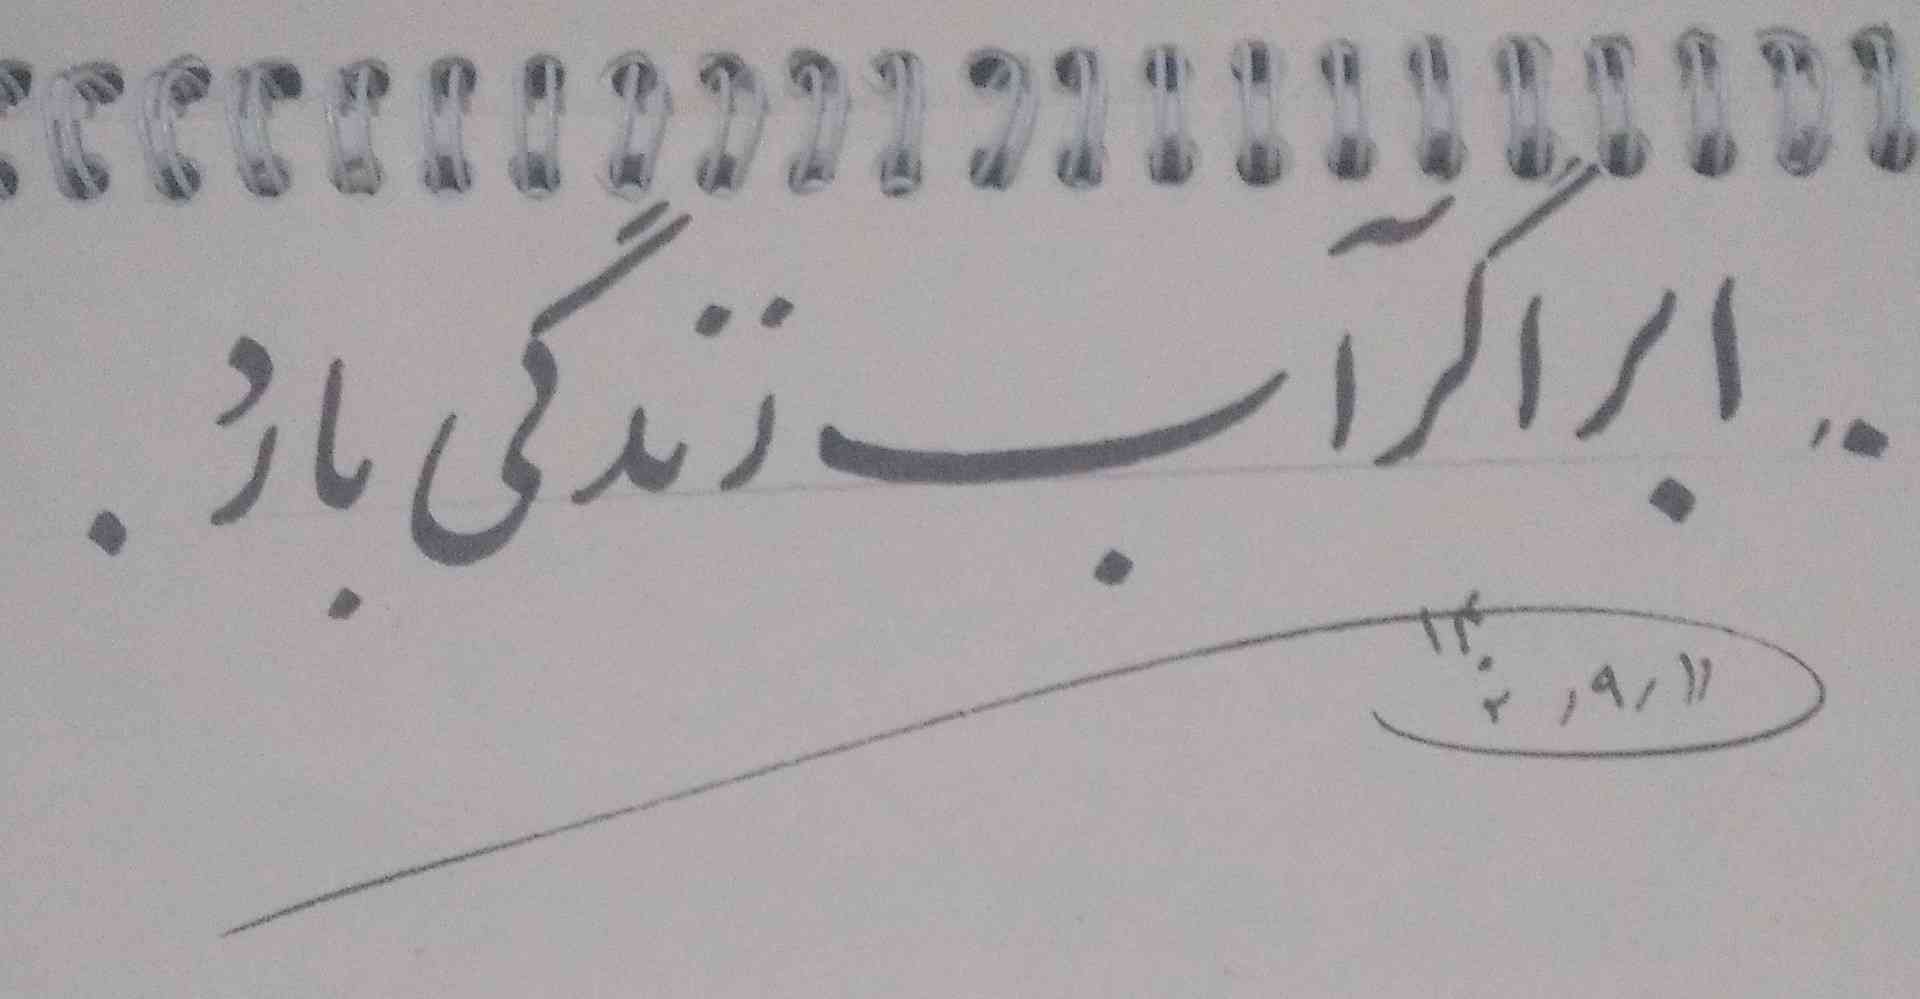 ابر اگر آب زندگی بارد .
۱۴۰۲٫۹٫۱۱